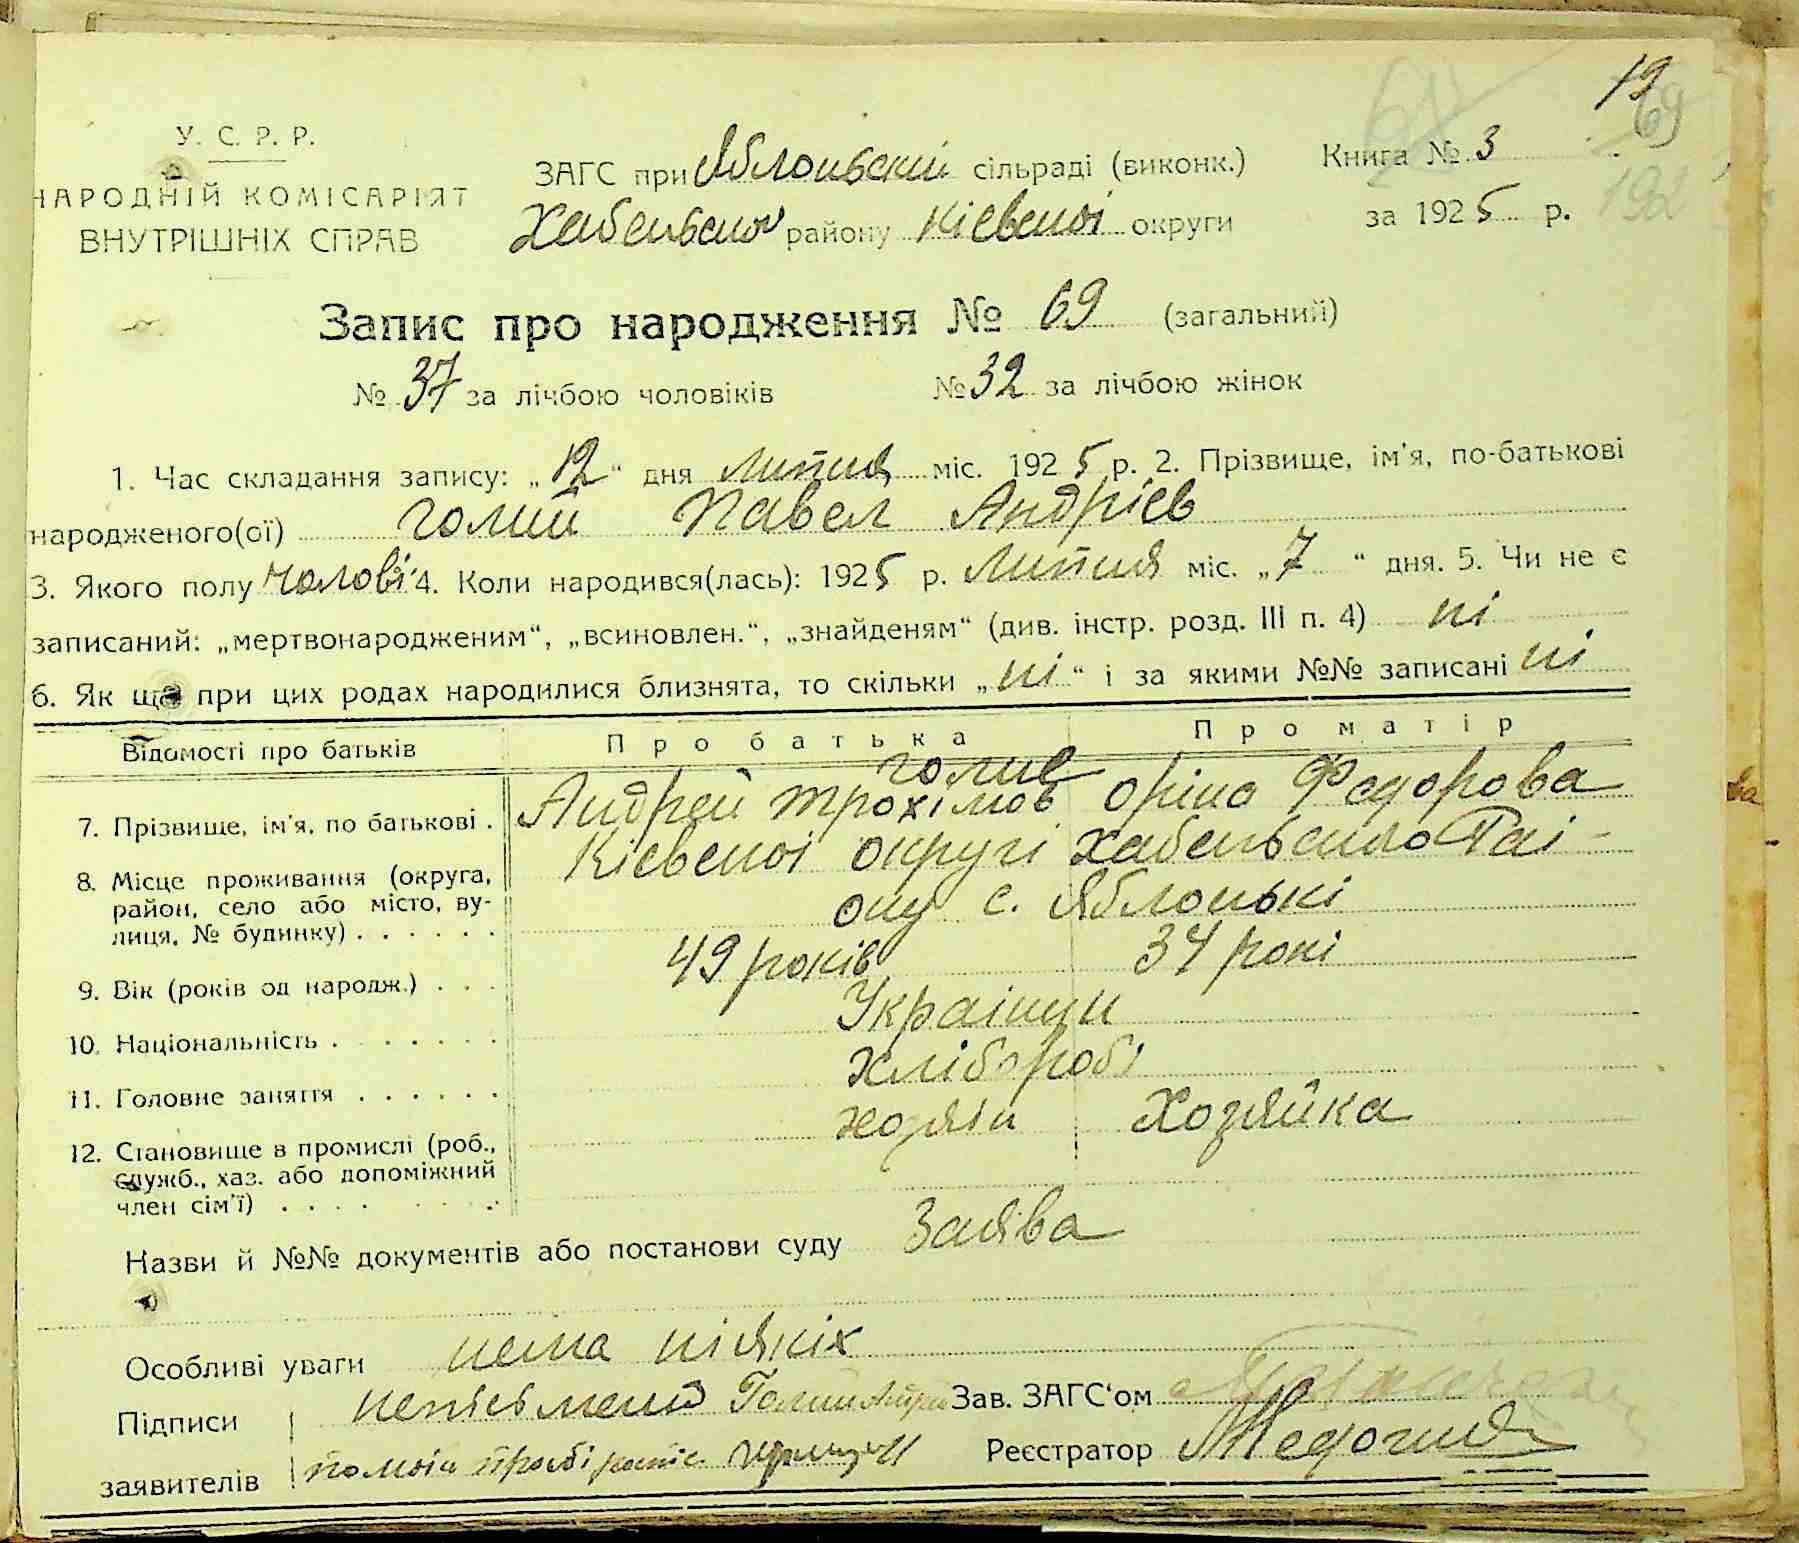 19
69
У. С. Р. Р.
НАРОДНІЙ КОМІСАРІЯТ
ВНУТРІШНІХ СПРАВ
ЗАГС при Яблоньскій сільраді (виконк.)
Хабеньского району Кіевскоі округи
Книга № 3
за 1925 р.
192
Запис про народження № 69 (загальний)
№ 37 за лічбою чоловіків № 32 за лічбою жінок
1. Час складання запису: „12“ дня липня міс. 1925 р. 2. Прізвище, ім'я, по-батькові
народженого(ої) Голий Павел Андріев
3. Якого полу чолові 4. Коли народився(лась): 1925 р. Липня міс. „7“ дня. 5. Чи не є
записаний: „мертвонародженим“, „всиновлен.“, „знайденям“ (див. інстр. розд. III п. 4) ні
6. Як що при цих родах народилися близнята, то скільки „ні“ і за якими №№ записані ні
Відомості про батьків Про батька Про матір
7. Прізвище, ім'я, по батькові . Андрей Трохімов Оріна Федорова
8. Місце проживання (округа, район, село або місто, вулиця, № будинку) . . . . . . Кіевскоі округі Хабеньского Раі-
ону с. Яблонькі
9. Вік (років од народж.) . . . 49 років 34 рокі
10. Національність . . . . . . . Украінци
11. Головне заняття . . . . . . Хліборобі
12. Становище в промислі (роб., служб., хаз. або допоміжний член сім'ї) . . . . хозяін Хозяйка
Назви й №№ документів або постанови суду Заява
Особливі уваги нема ніякіх
Підписи заявителів неписьмений Голий Зав. ЗАГС'ом
Реєстратор